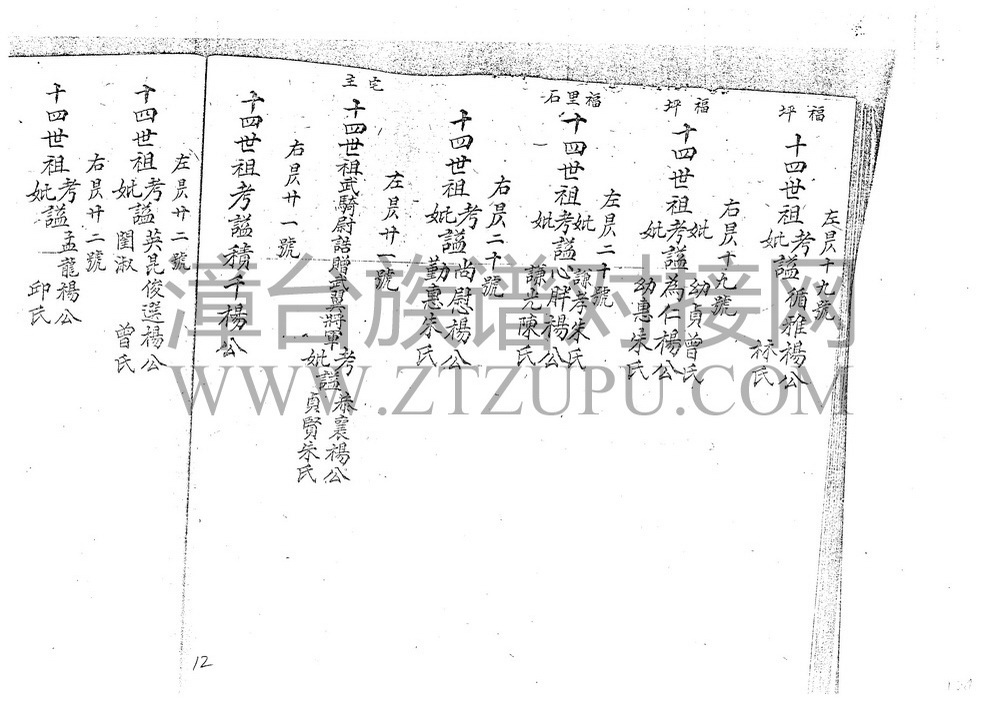 福坪
左昃十九號
十四世祖考謚循雅楊公
妣林氏
福坪
右昃十九號
妣幼貞曾氏
十四世祖考謚為仁楊公
妣幼惠朱氏
福里石
左昃二十號
妣謙孝朱氏
十四世祖考謚心胖楊公
妣謙光陳氏
右昃二十號
十四世祖考謚尚慰楊公
妣勤惠朱氏
左昃廿一號
宅主
十四世祖武騎尉誥贈武翼將軍考謚恭襄楊公
妣貞賢朱氏
右昃廿一號
十四世祖考謚積千楊公
左昃廿二號
十四世祖考謚英昆俊選楊公
妣閨淑曾氏
右昃廿二號
十四世祖考謚孟龍楊公
妣邱氏
12
漳台族谱对接网
WWW.ZTZUPU.COM